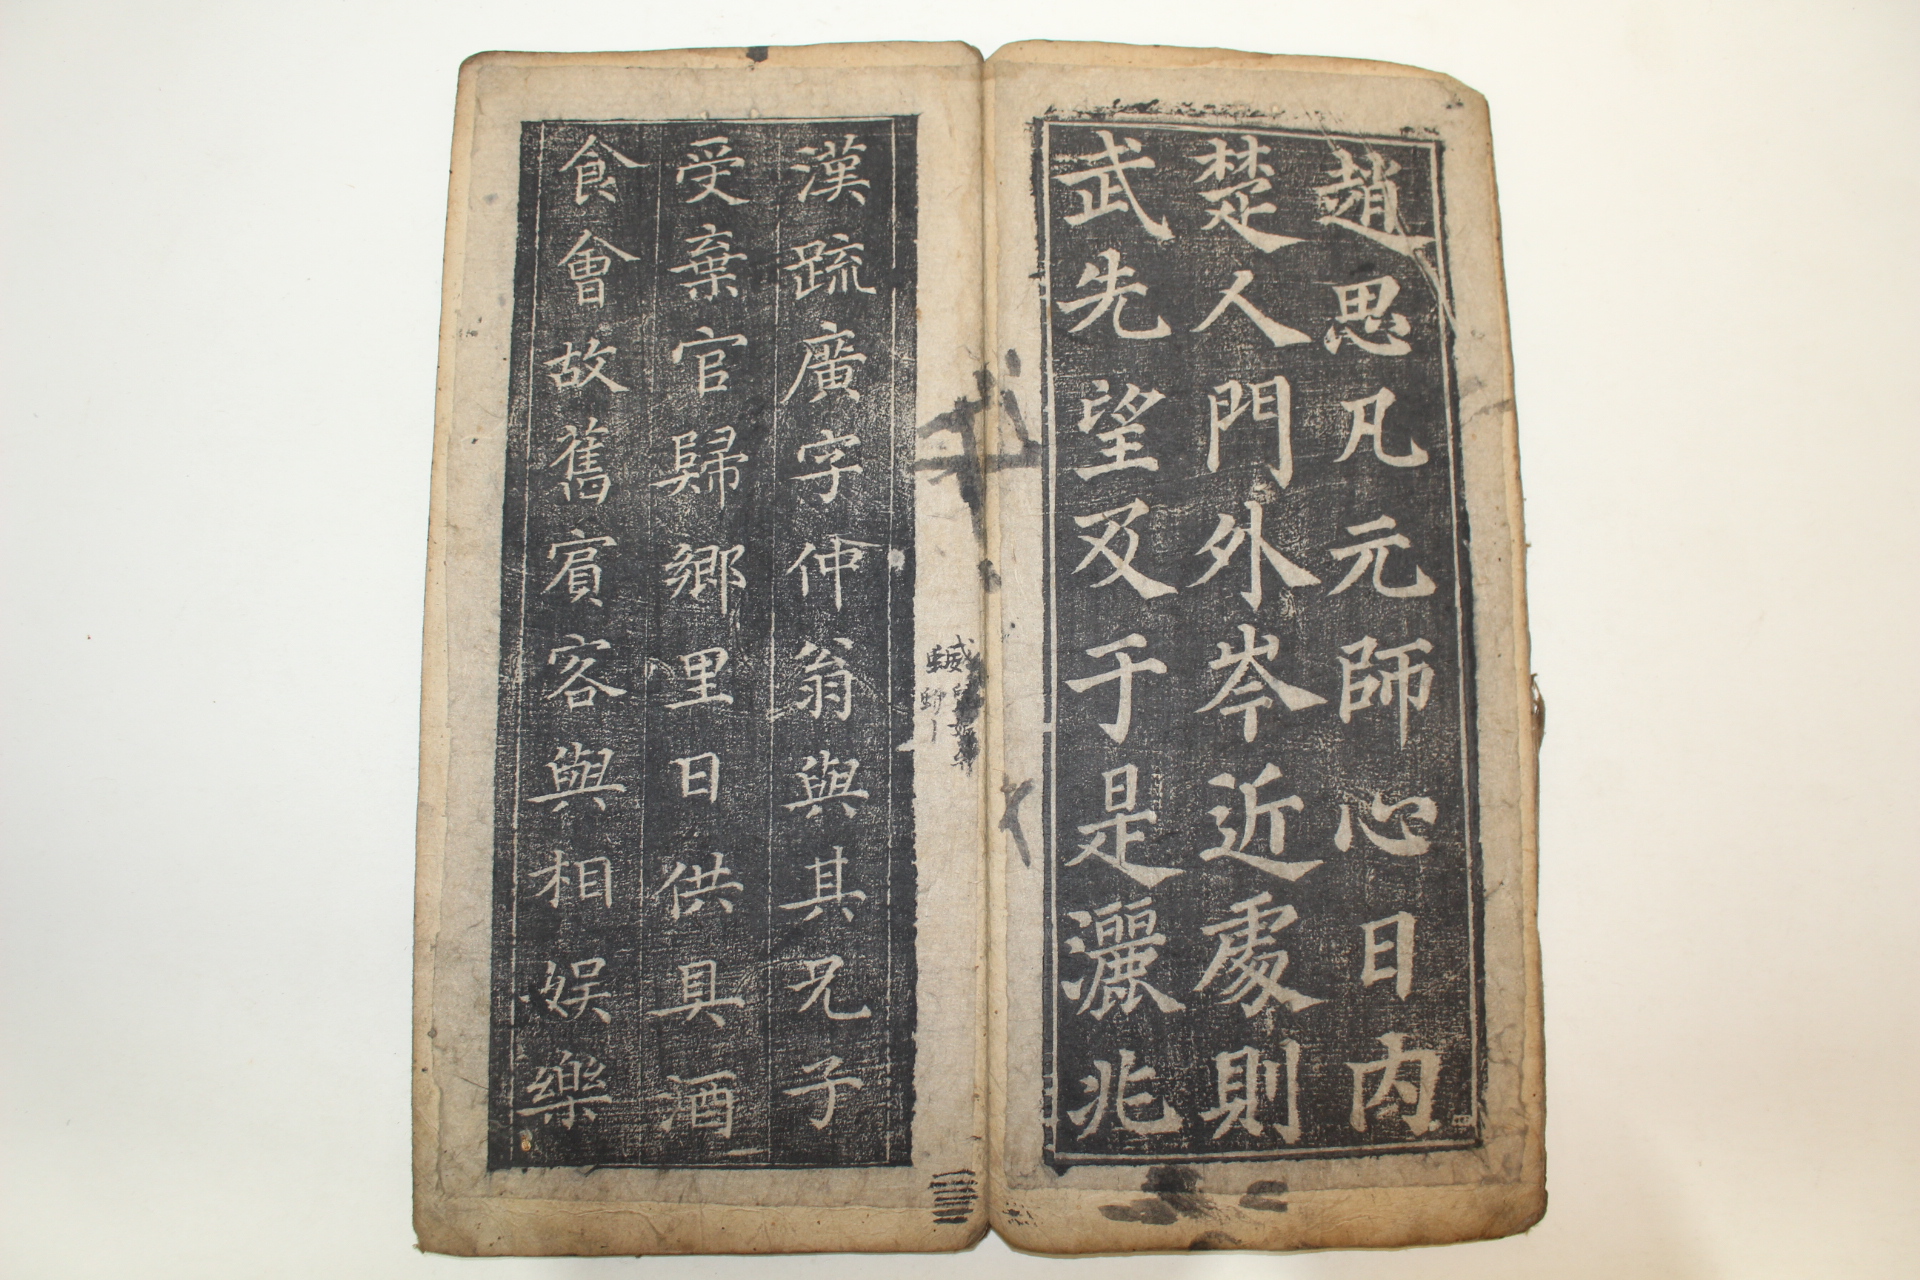 趙思凡元師心日内
楚人門外岑近處則
武先望及于是灑兆
漢疏廣字仲翁與其兄子
受棄官歸鄉里日供具酒
食會故舊賓客與相娱樂